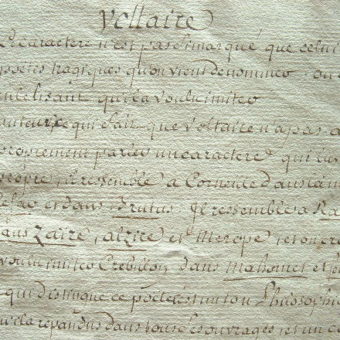 Voltaire
Le caractere n'est pas si marqué que celui
poetes tragiques qu'on vient de nommer. on
en lisant qu'il a voulu imiter
auteurs ce qui fait que Voltaire n'a pas a
proprement parler un caractere qui lui
propre, il ressemble a Corneille dans la m
et dans Brutus. Il ressemble a Ra
dans Zaire, alzire et Merope, et on cr
voulu imiter Crebillon dans Mahomet et
qui distingue ce poete c'est un ton Philosophi
repandu dans tous ses ouvrages, et un co